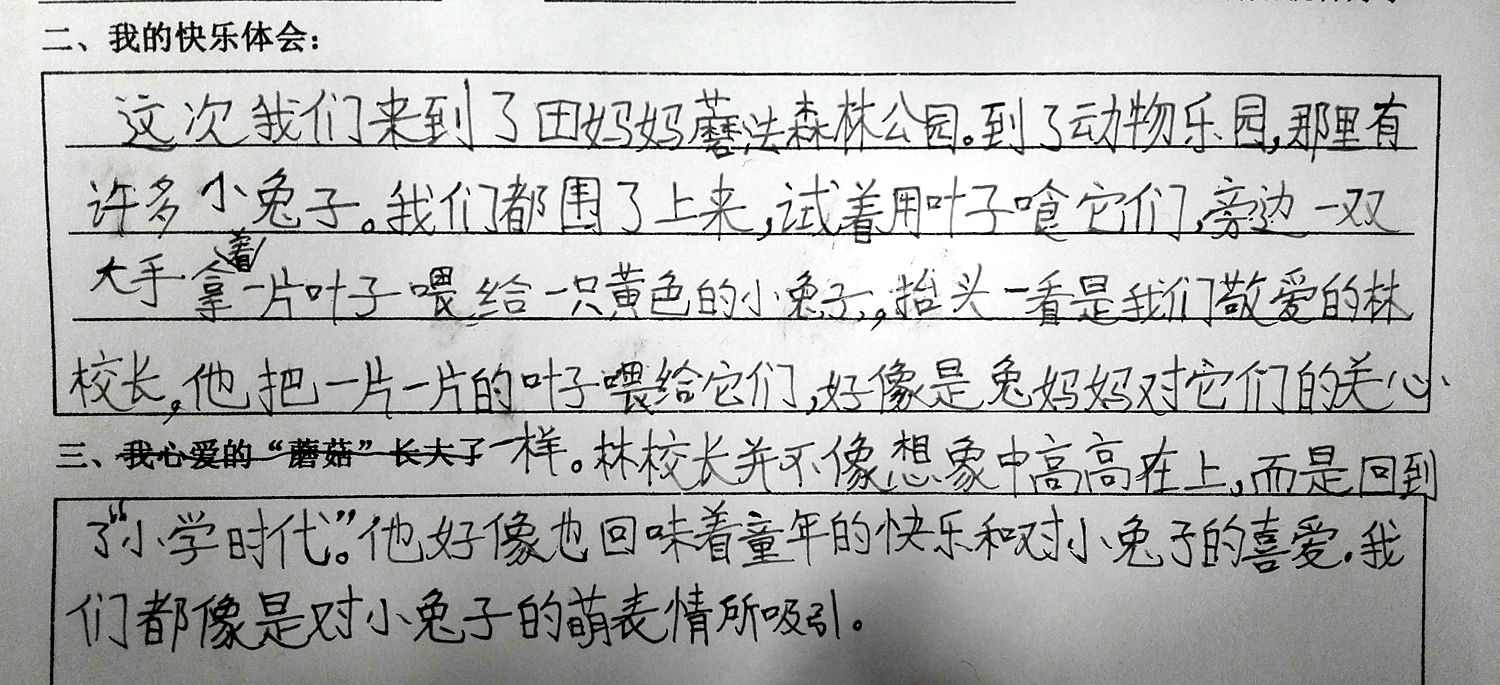 二、我的快乐体会：
这次我们来到了田妈妈蘑法森林公园。到了动物乐园,那里有
许多小兔子。我们都围了上来,试着用叶子喰它们,旁边一双
大手拿着一片叶子喂给一只黄色的小兔子,抬头一看是我们敬爱的林
校长,他把一片一片的叶子喂给它们,好像是兔妈妈对它们的关心
三、我心爱的“蘑菇”长大了一样。林校长并不像想象中高高在上,而是回到
了“小学时代”。他好像也回味着童年的快乐和对小兔子的喜爱.我
们都像是对小兔子的萌表情所吸引。